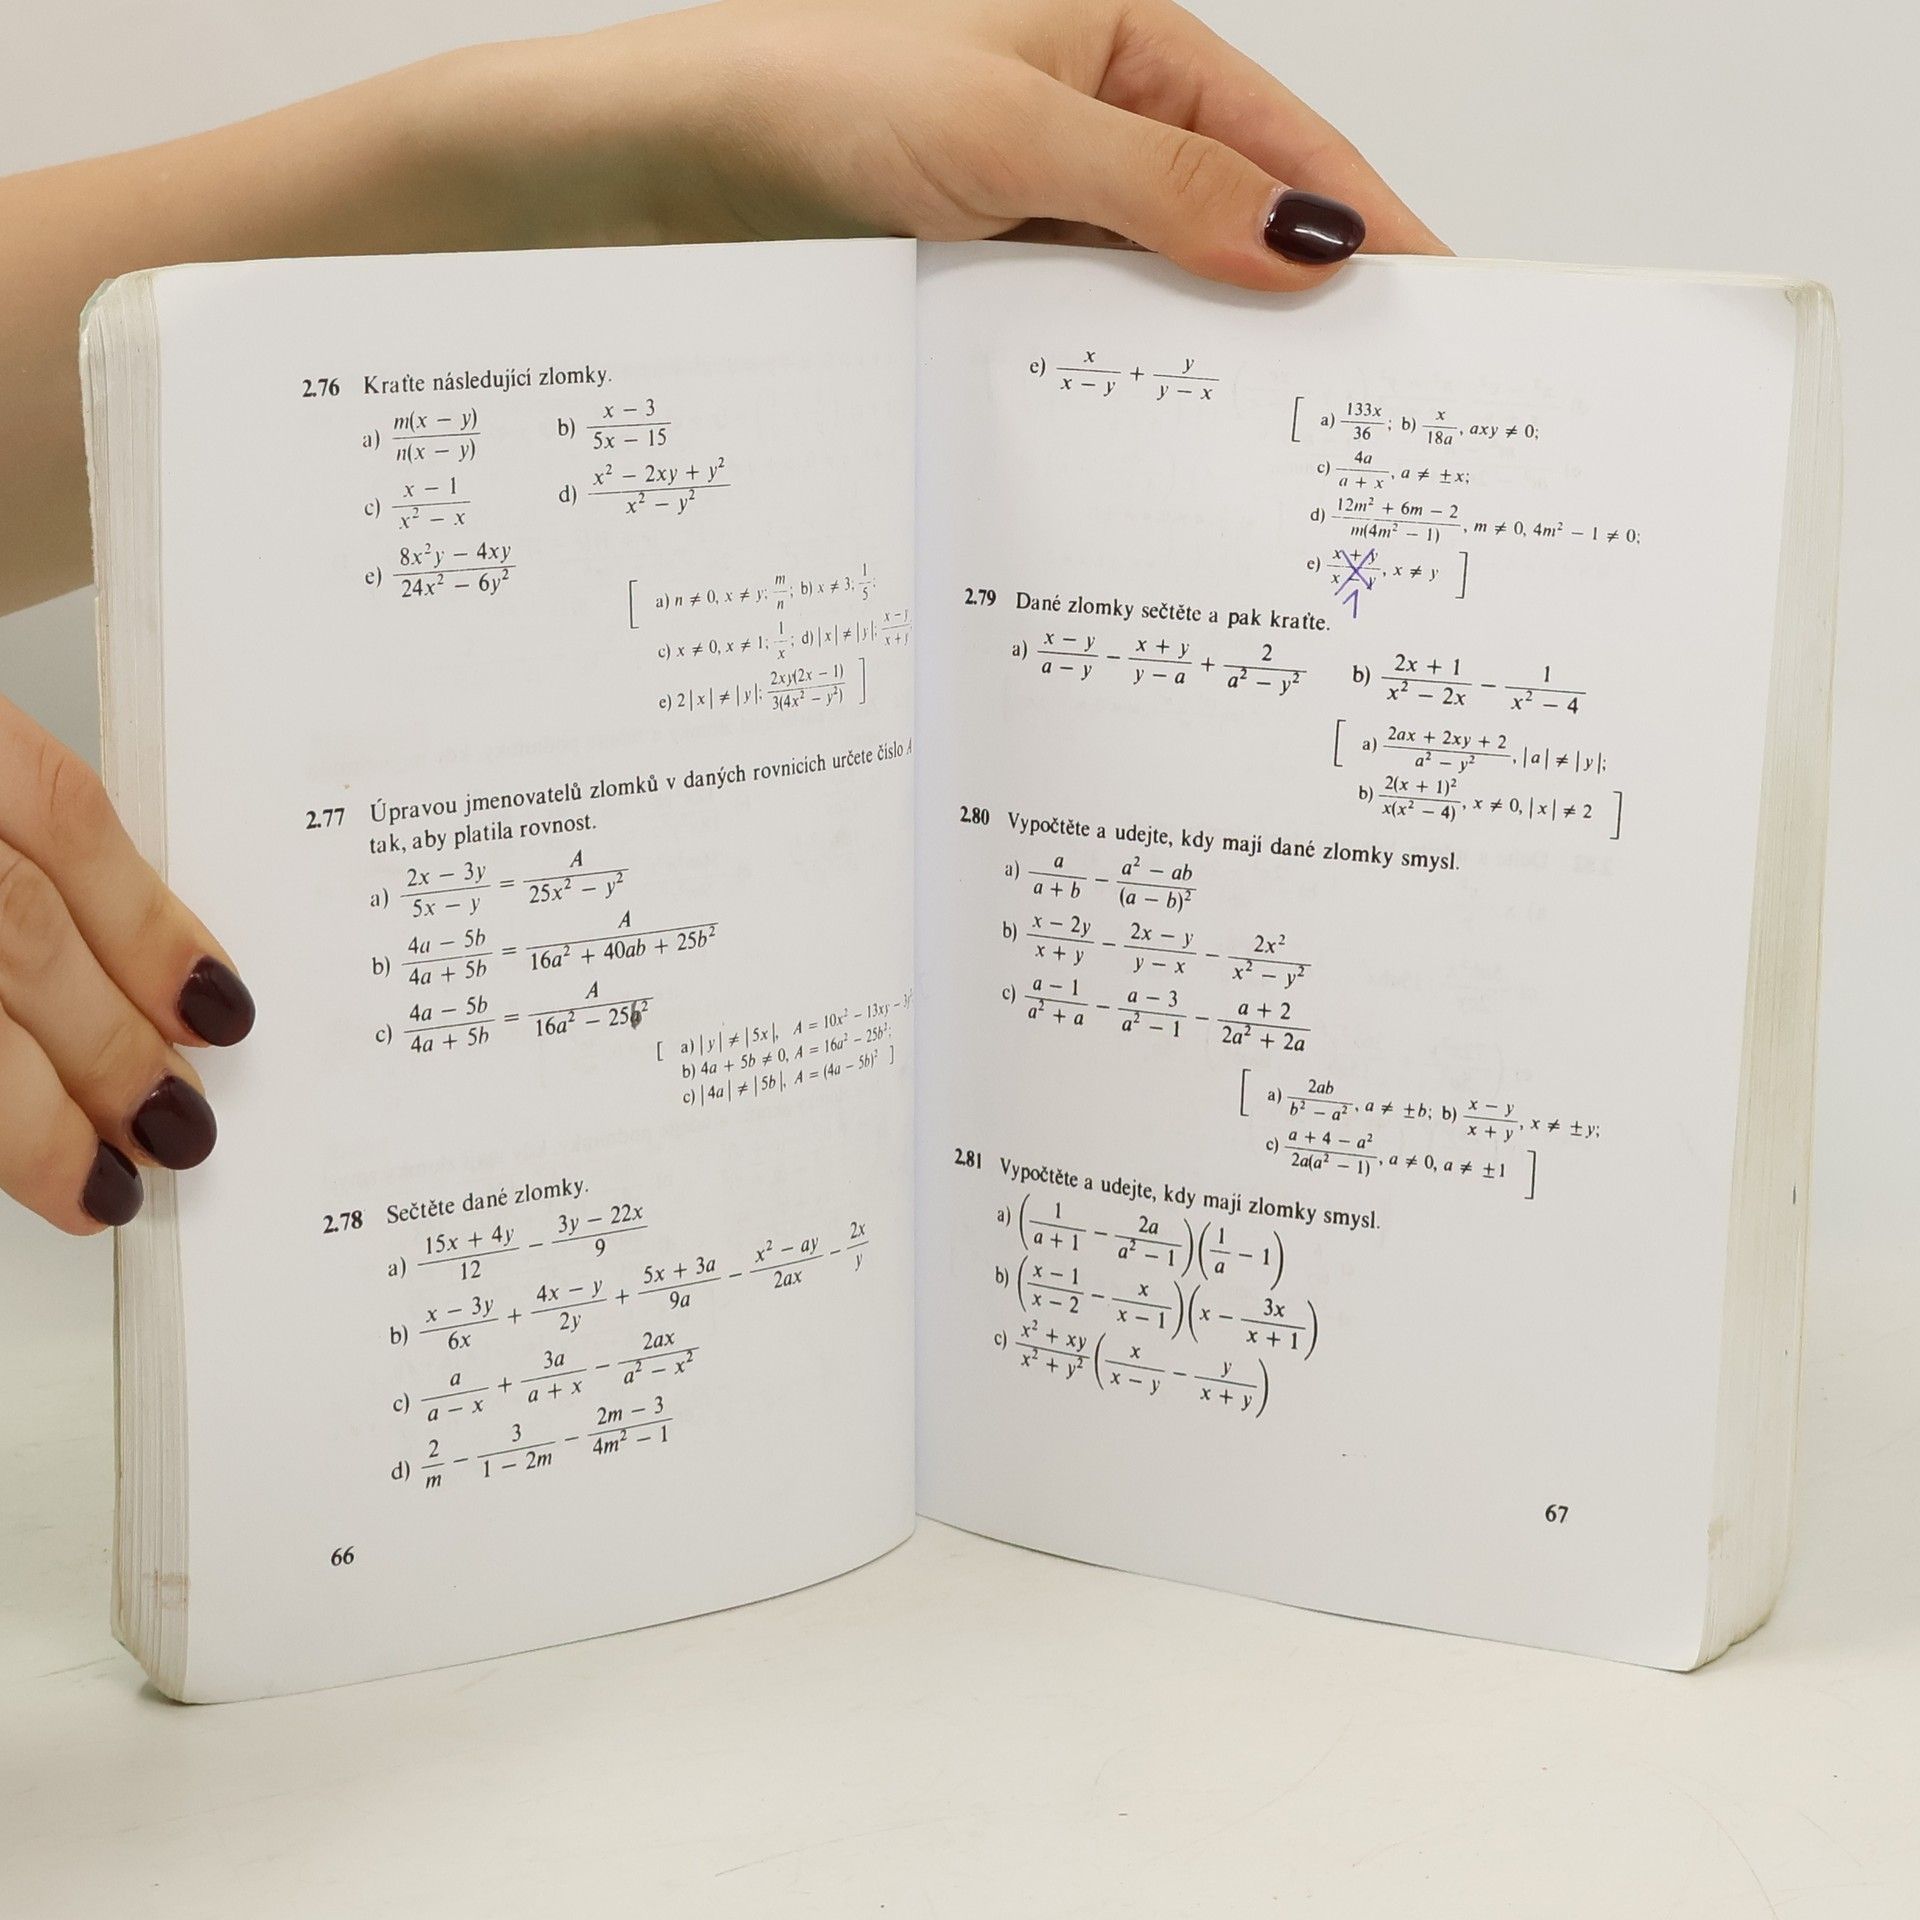 2.76 Kraťte následující zlomky.
a) m(x − y)/n(x − y) b) (x − 3)/(5x − 15)
c) (x − 1)/(x² − x) d) (x² − 2xy + y²)/(x² − y²)
e) (8x²y − 4xy)/(24x² − 6y²)
[ a) n ≠ 0, x ≠ y; m/n; b) x ≠ 3; 1/5;
c) x ≠ 0, x ≠ 1; 1/x; d) |x| ≠ |y|; (x − y)/(x + y)
e) 2|x| ≠ |y|; 2xy(2x − 1)/3(4x² − y²) ]
2.77 Úpravou jmenovatelů zlomků v daných rovnicích určete číslo A
tak, aby platila rovnost.
a) (2x − 3y)/(5x − y) = A/(25x² − y²)
b) (4a − 5b)/(4a + 5b) = A/(16a² + 40ab + 25b²)
c) (4a − 5b)/(4a + 5b) = A/(16a² − 25b²)
[ a) |y| ≠ |5x|, A = 10x² − 13xy − 3y²
b) 4a + 5b ≠ 0, A = 16a² − 25b²;
c) |4a| ≠ |5b|, A = (4a − 5b)² ]
2.78 Sečtěte dané zlomky.
a) (15x + 4y)/12 − (3y − 22x)/9
b) (x − 3y)/6x + (4x − y)/2y + (5x + 3a)/9a − (x² − ay)/2ax − 2x/y
c) a/(a − x) + 3a/(a + x) − 2ax/(a² − x²)
d) 2/m − 3/(1 − 2m) − (2m − 3)/(4m² − 1)
66
e) x/(x − y) + y/(y − x)
[ a) 133x/36; b) x/18a, axy ≠ 0;
c) 4a/(a + x), a ≠ ±x;
d) (12m² + 6m − 2)/m(4m² − 1), m ≠ 0, 4m² − 1 ≠ 0;
e) (x + y)/(x − y), x ≠ y ]
1
2.79 Dané zlomky sečtěte a pak kraťte.
a) (x − y)/(a − y) − (x + y)/(y − a) + 2/(a² − y²) b) (2x + 1)/(x² − 2x) − 1/(x² − 4)
[ a) (2ax + 2xy + 2)/(a² − y²), |a| ≠ |y|;
b) 2(x + 1)²/x(x² − 4), x ≠ 0, |x| ≠ 2 ]
2.80 Vypočtěte a udejte, kdy mají dané zlomky smysl.
a) a/(a + b) − (a² − ab)/(a − b)²
b) (x − 2y)/(x + y) − (2x − y)/(y − x) − 2x²/(x² − y²)
c) (a − 1)/(a² + a) − (a − 3)/(a² − 1) − (a + 2)/(2a² + 2a)
[ a) 2ab/(b² − a²), a ≠ ±b; b) (x − y)/(x + y), x ≠ ±y;
c) (a + 4 − a²)/2a(a² − 1), a ≠ 0, a ≠ ±1 ]
2.81 Vypočtěte a udejte, kdy mají zlomky smysl.
a) (1/(a + 1) − 2a/(a² − 1))(1/a − 1)
b) ((x − 1)/(x − 2) − x/(x − 1))(x − 3x/(x + 1))
c) (x² + xy)/(x² + y²) (x/(x − y) − y/(x + y))
67